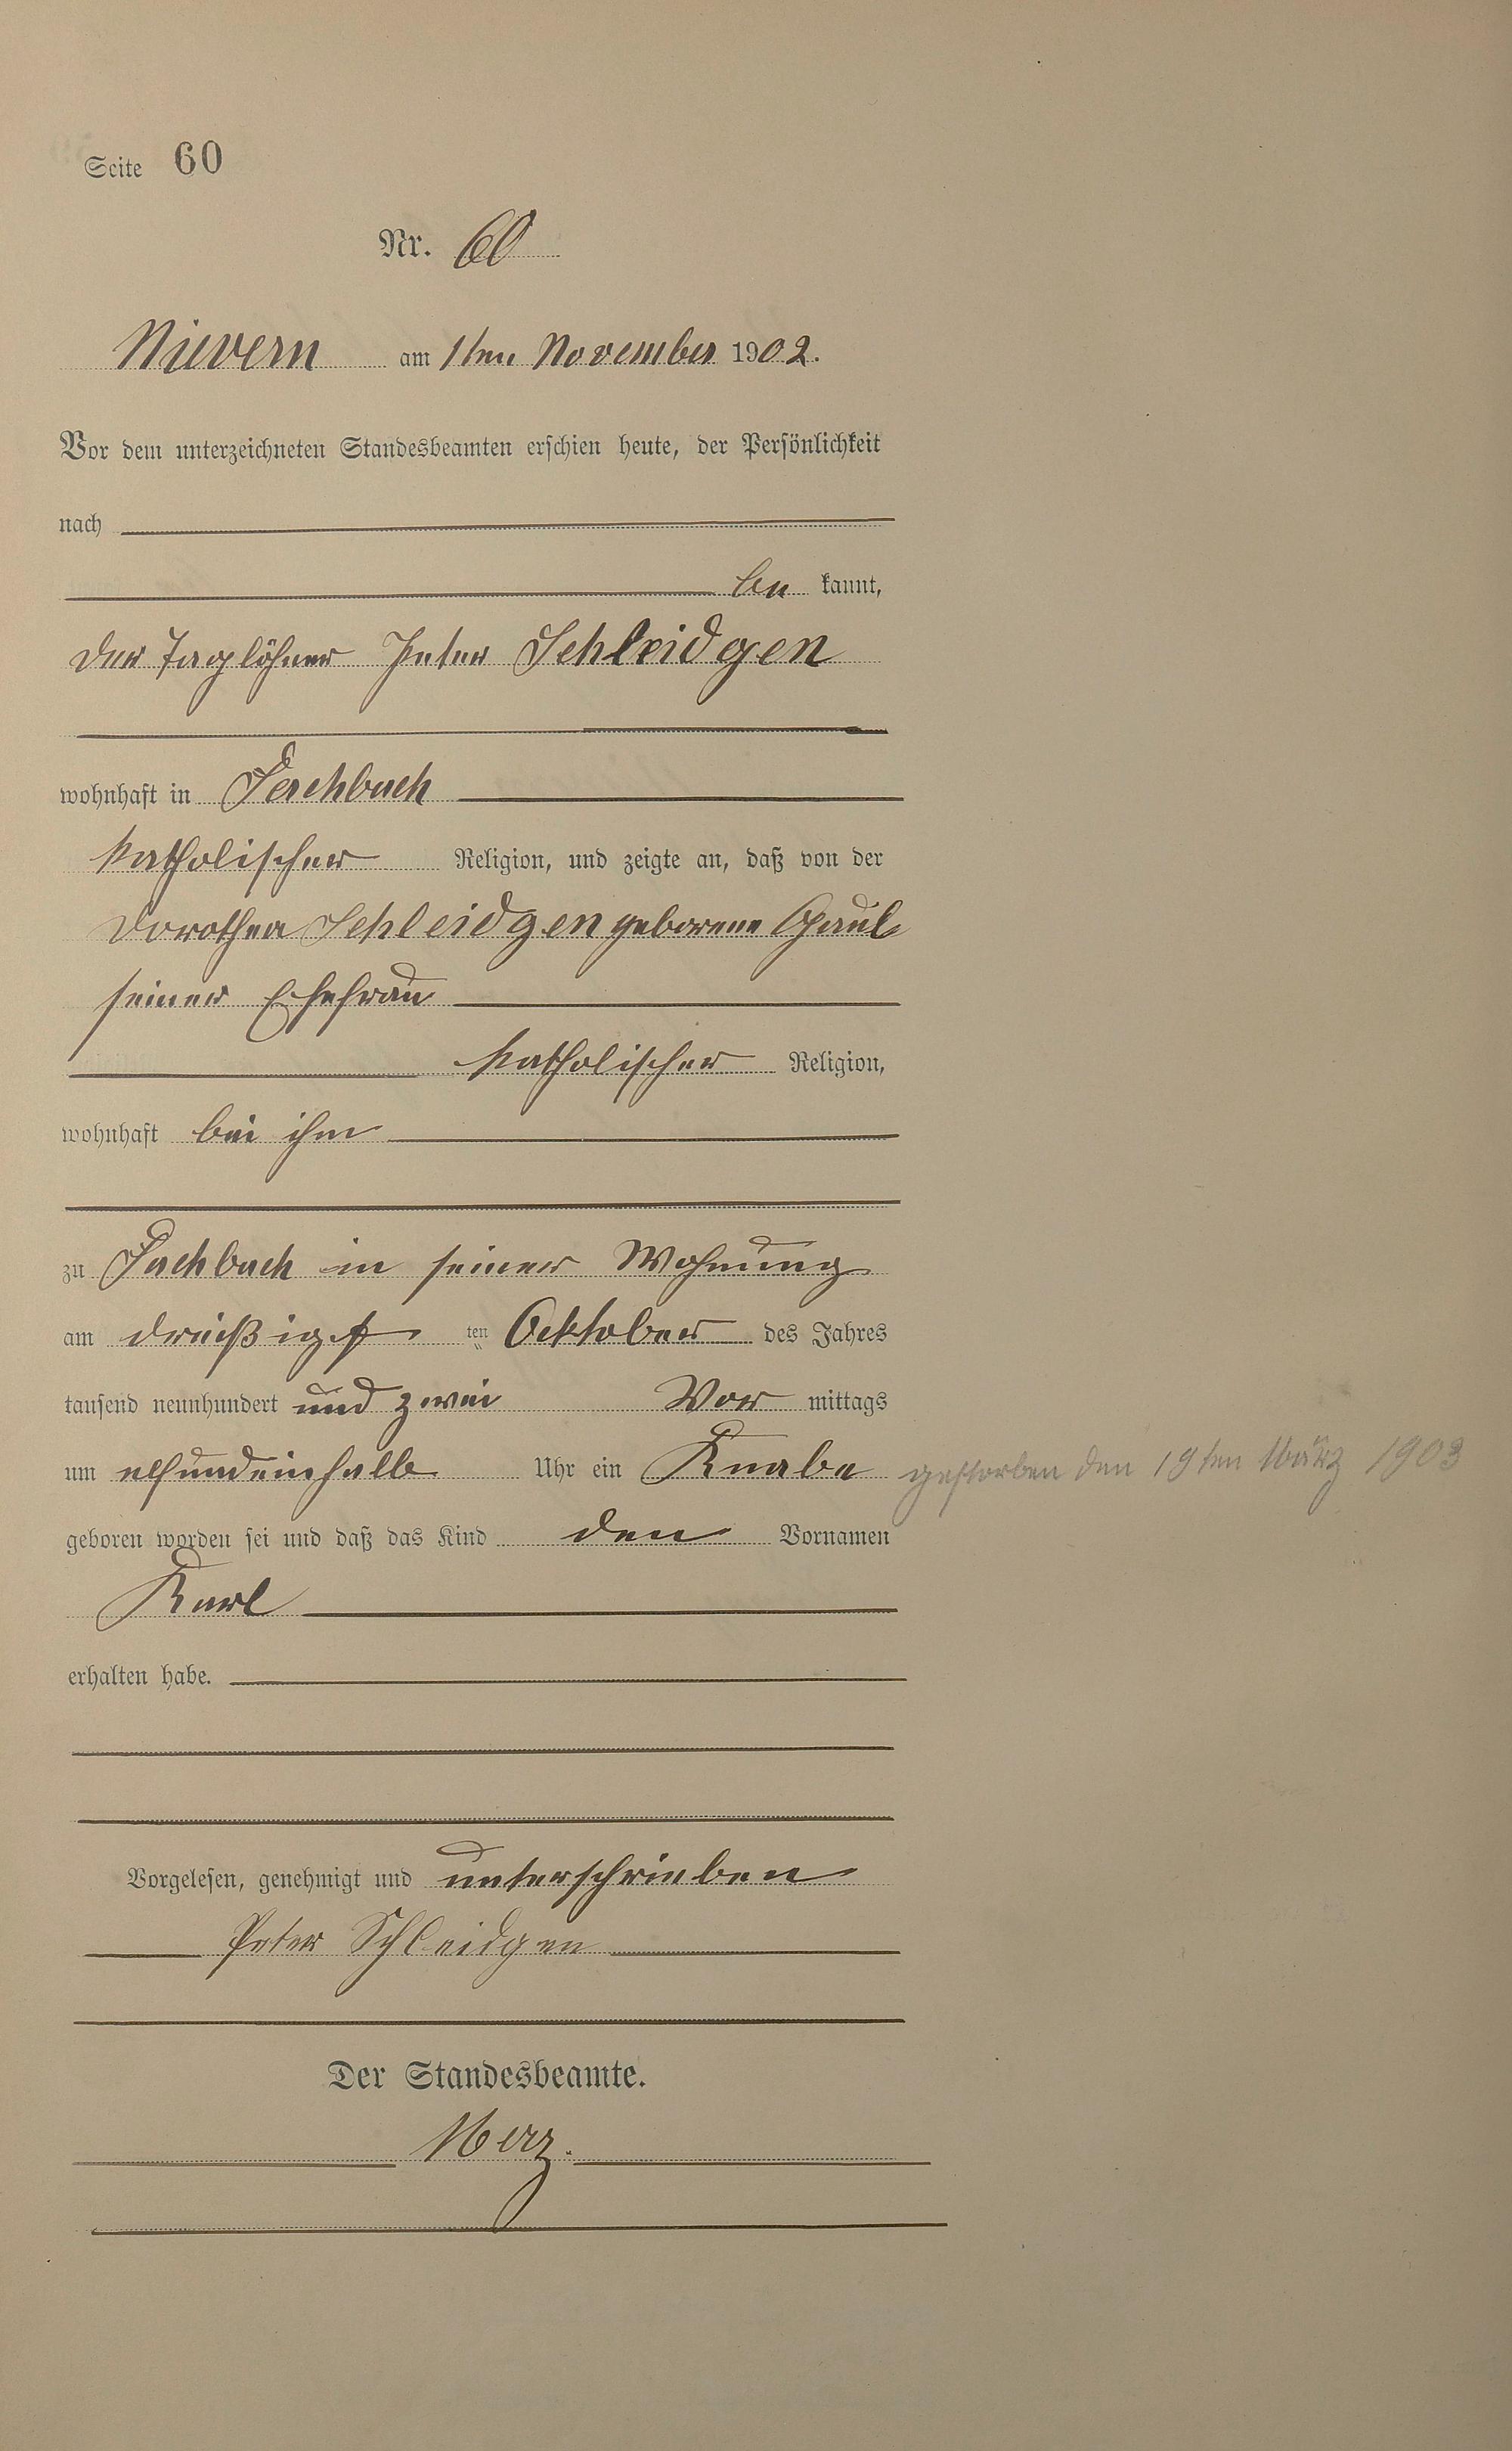 Seite 60
Nr. 60
Nievern am 1ten November 1902.
Vor dem unterzeichneten Standesbeamten erschien heute, der Persönlichkeit
nach
be kannt,
der Taglöhner Peter Schleidgen
wohnhaft in Fachbach
katholischer Religion, und zeigte an, daß von der
Dorothea Schleidgen geborene Gaul
seiner Ehefrau
katholischer Religion,
wohnhaft bei ihm
zu Fachbach in seiner Wohnung
am dreißigst ten Oktober des Jahres
tausend neunhundert und zwei Vor mittags
um elfundeinhalb Uhr ein Knabe gestorben den 19ten März 1903
geboren worden sei und daß das Kind den Vornamen
Karl
erhalten habe.
Vorgelesen, genehmigt und unterschrieben
Peter Schleidgen
Der Standesbeamte.
Merz.